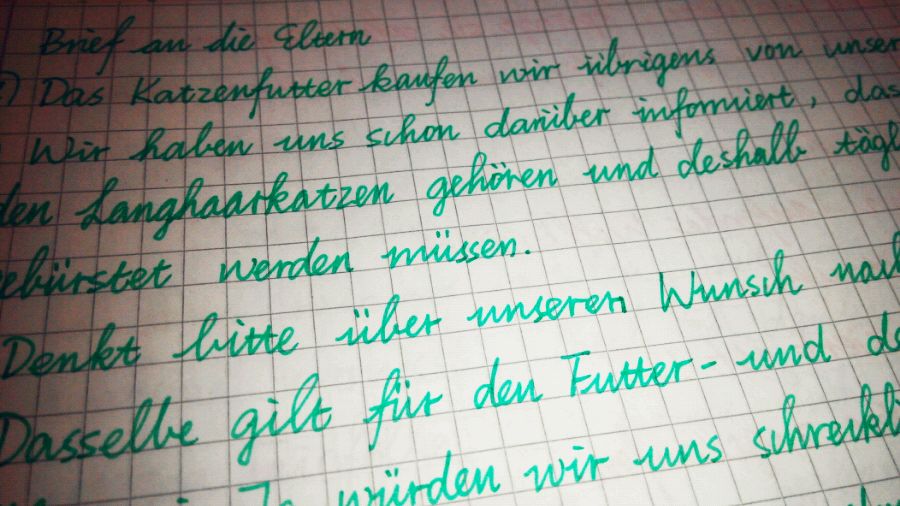 Brief an die Eltern
Das Katzenfutter kaufen wir übrigens von unser
Wir haben uns schon darüber informiert, das
den Langhaarkatzen gehören und deshalb tägl
ebürstet werden müssen.
Denkt bitte über unseren Wunsch nach
Dasselbe gilt für den Futter- und de
würden wir uns schreckli